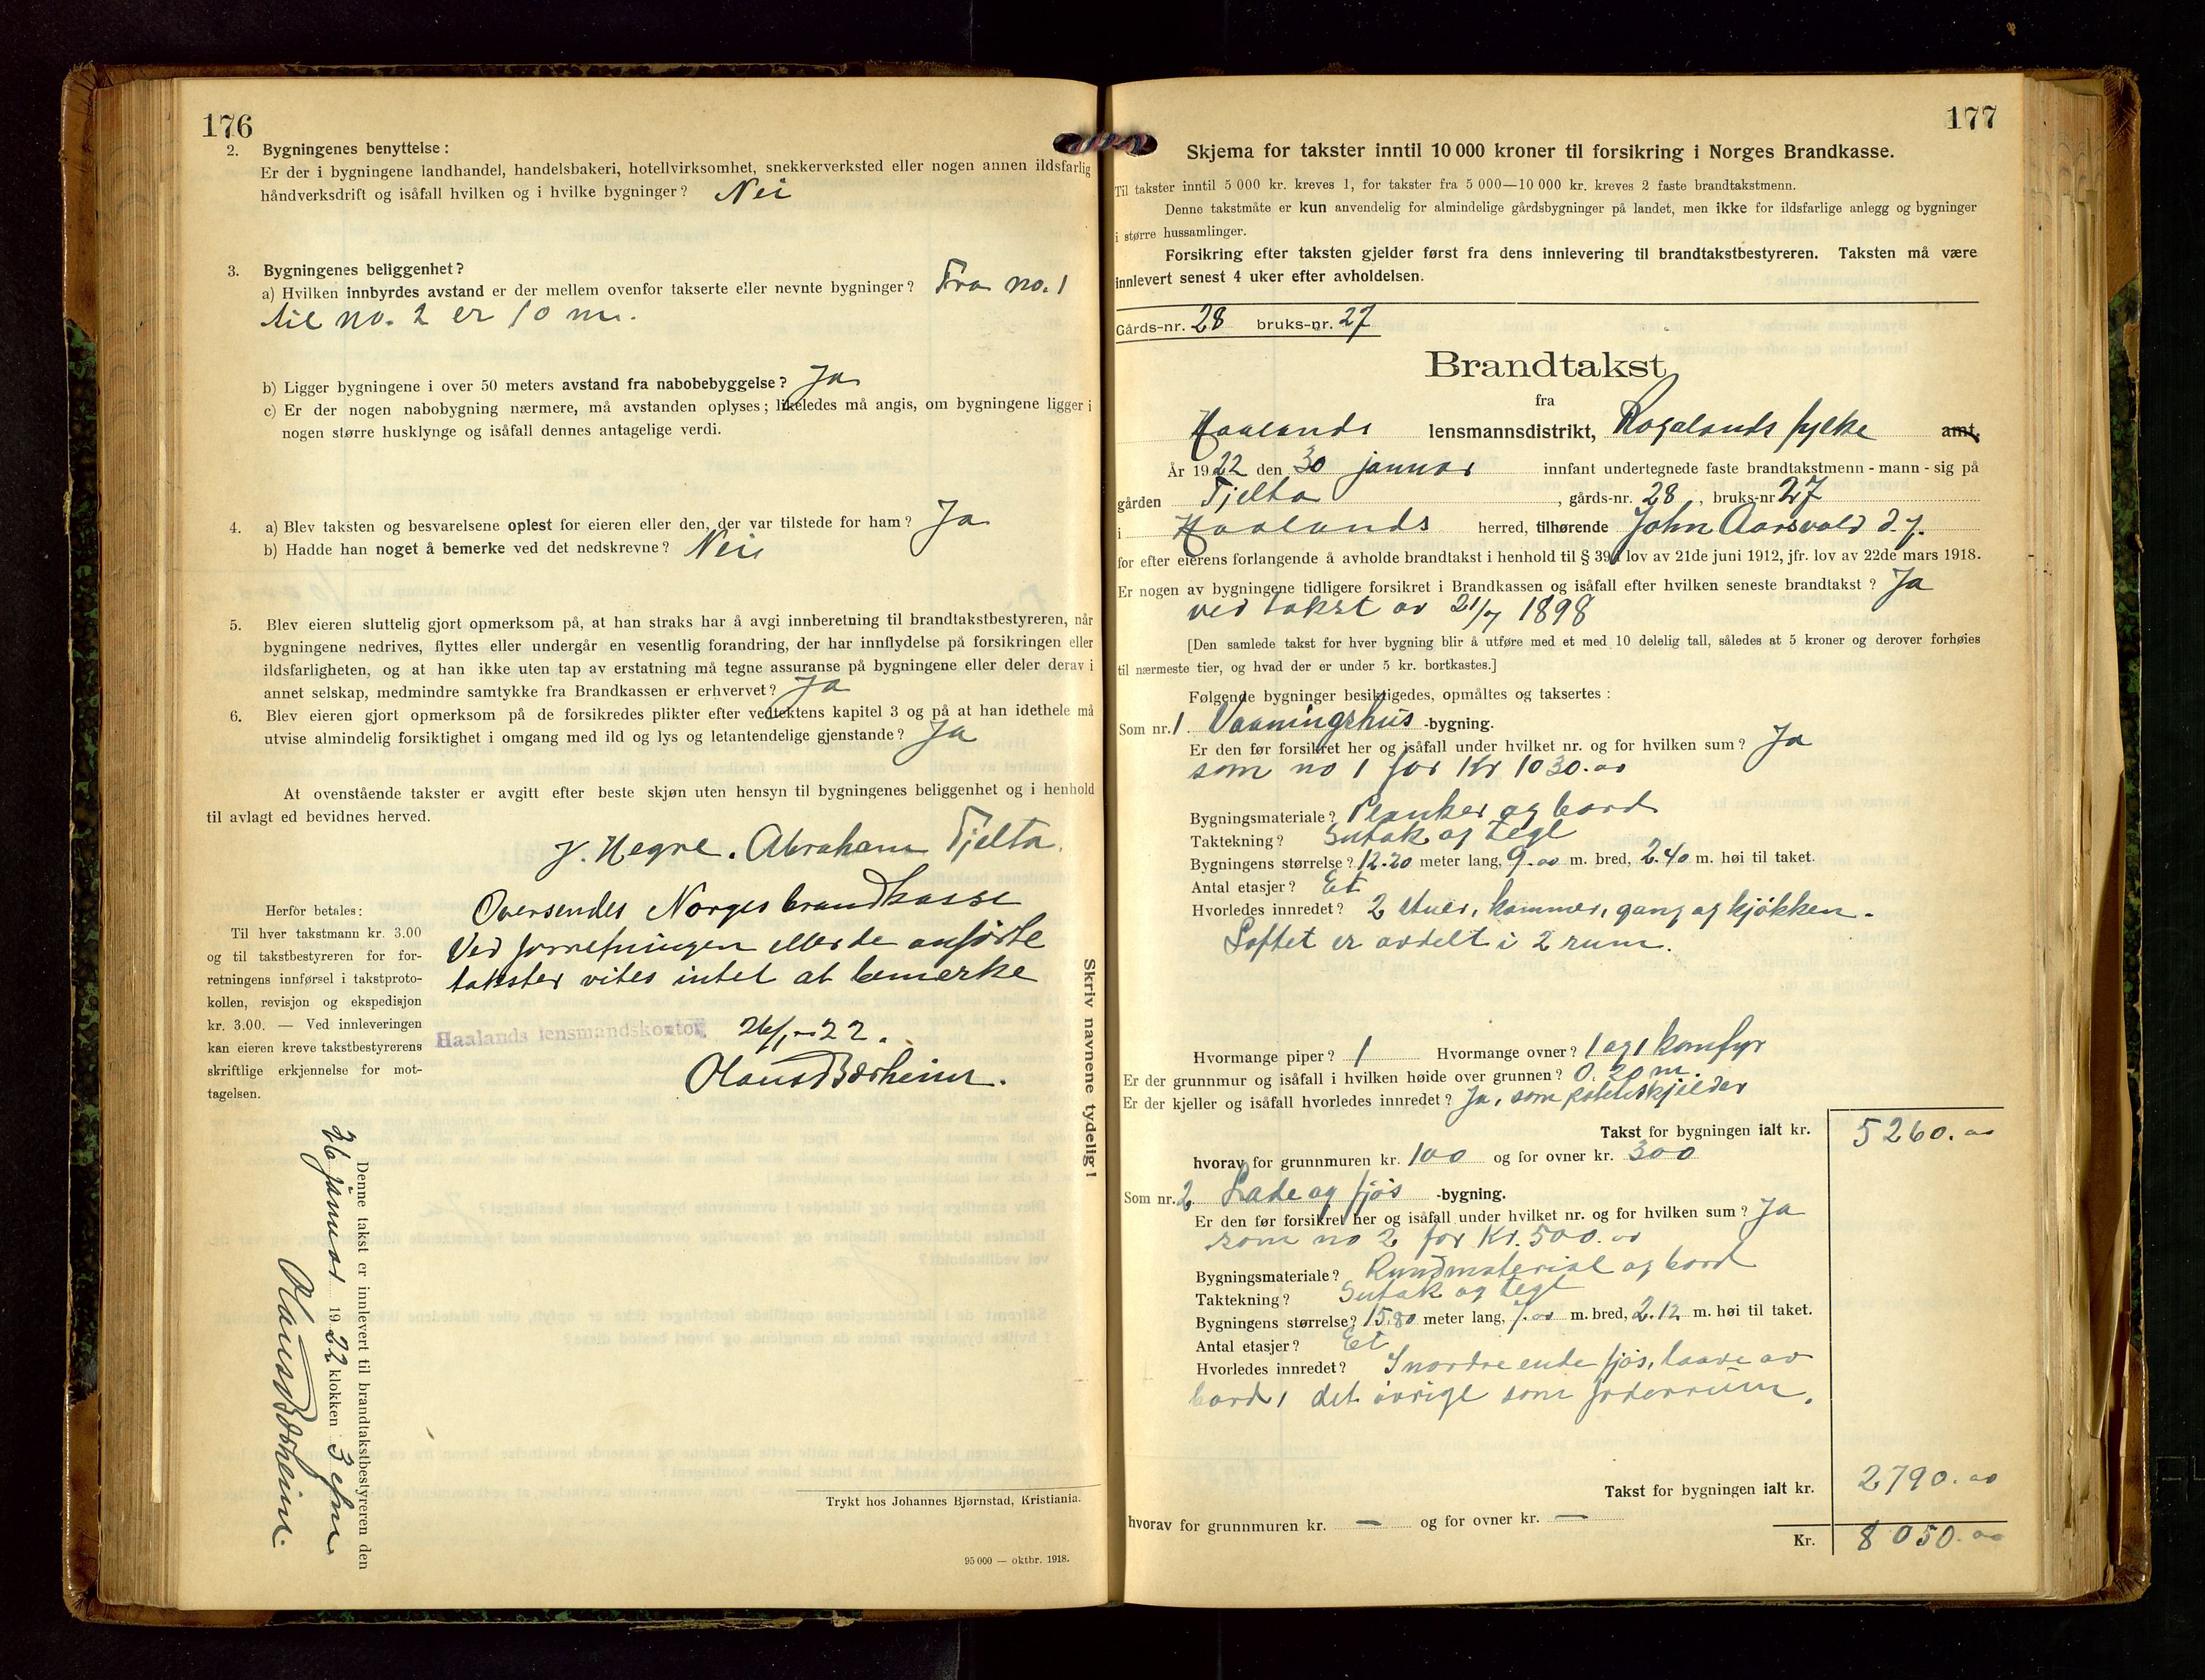 176
2. Bygningenes benyttelse :
Er der i bygningene landhandel, handelsbakeri, hotellvirksomhet, snekkerverksted eller nogen annen ildsfarlig
håndverksdrift og isåfall hvilken og i hvilke bygninger? Nei
3. Bygningenes beliggenhet?
a) Hvilken innbyrdes avstand er der mellem ovenfor takserte eller nevnte bygninger? Fra no. 1
til no. 2 er 10 m.
b) Ligger bygningene i over 50 meters avstand fra nabobebyggelse? Ja
c) Er der nogen nabobygning nærmere, må avstanden oplyses; likeledes må angis, om bygningene ligger i
nogen større husklynge og isåfall dennes antagelige verdi.
4. a) Blev taksten og besvarelsene oplest for eieren eller den, der var tilstede for ham? Ja
b) Hadde han noget å bemerke ved det nedskrevne? Nei
5. Blev eieren sluttelig gjort opmerksom på, at han straks har å avgi innberetning til brandtakstbestyreren, når
bygningene nedrives, flyttes eller undergår en vesentlig forandring, der har innflydelse på forsikringen eller
ildsfarligheten, og at han ikke uten tap av erstatning må tegne assuranse på bygningene eller deler derav i
annet selskap, medmindre samtykke fra Brandkassen er erhvervet? Ja
6. Blev eieren gjort opmerksom på de forsikredes plikter efter vedtektens kapitel 3 og på at han idethele må
utvise almindelig forsiktighet i omgang med ild og lys og letantendelige gjenstande? Ja
At ovenstående takster er avgitt efter beste skjøn uten hensyn til bygningenes beliggenhet og i henhold
til avlagt ed bevidnes herved.
J. Hegre. Abraham Tjelta.
Oversendes Norges brandkasse
Ved forretningen eller de anførte
takster vites intet at bemerke
Haalands lensmandskontor 26/1-22.
Olaus Børheim.
Herfor betales:
Til hver takstmann kr. 3.00
og til takstbestyreren for for-
retningens innførsel i takstproto-
kollen, revisjon og ekspedisjon
kr. 3.00. — Ved innleveringen
kan eieren kreve takstbestyrerens
skriftlige erkjennelse for mot-
tagelsen.
Denne takst er innlevert til brandtakstbestyreren den
26 januar 1922 klokken 3 efm.
Olaus Børheim.
Skriv navnene tydelig!
Trykt hos Johannes Bjørnstad, Kristiania.
95 000 — oktbr. 1918.
177
Skjema for takster inntil 10 000 kroner til forsikring i Norges Brandkasse.
Til takster inntil 5 000 kr. kreves 1, for takster fra 5 000—10 000 kr. kreves 2 faste brandtakstmenn.
Denne takstmåte er kun anvendelig for almindelige gårdsbygninger på landet, men ikke for ildsfarlige anlegg og bygninger
i større hussamlinger.
Forsikring efter taksten gjelder først fra dens innlevering til brandtakstbestyreren. Taksten må være
innlevert senest 4 uker efter avholdelsen.
Gårds-nr. 28 bruks-nr. 27
Brandtakst
fra
Haalands lensmannsdistrikt, Rogalands fylke amt.
År 1922 den 30 januar innfant undertegnede faste brandtakstmenn - mann - sig på
gården Tjelta, gårds-nr. 28, bruks-nr 27
i Haalands herred, tilhørende John Aarsvold d. y.
for efter eierens forlangende å avholde brandtakst i henhold til § 39 i lov av 21de juni 1912, jfr. lov av 22de mars 1918.
Er nogen av bygningene tidligere forsikret i Brandkassen og isåfall efter hvilken seneste brandtakst? Ja
ved takst av 21/7 1898
[Den samlede takst for hver bygning blir å utføre med et med 10 delelig tall, således at 5 kroner og derover forhøies
til nærmeste tier, og hvad der er under 5 kr. bortkastes.]
Følgende bygninger besiktigedes, opmåltes og taksertes :
Som nr. 1 Vaaningshus -bygning.
Er den før forsikret her og isåfall under hvilket nr. og for hvilken sum? Ja
som no 1 for Kr 1030.00
Bygningsmateriale? Planker og bord
Taktekning? Sutak og tegl
Bygningens størrelse? 12.20 meter lang, 9.00 m. bred, 2.40 m. høi til taket.
Antal etasjer? Et
Hvorledes innredet? 2 stuer, kammer, gang og kjøkken.
Loftet er avdelt i 2 rum.
Hvormange piper? 1 Hvormange ovner? 1 og 1 komfyr
Er der grunnmur og isåfall i hvilken høide over grunnen? 0.20 m.
Er der kjeller og isåfall hvorledes innredet? Ja, som potetskjelder
Takst for bygningen ialt kr. 5260.00
hvorav for grunnmuren kr. 100 og for ovner kr. 300
Som nr. 2 Lade og fjøs -bygning.
Er den før forsikret her og isåfall under hvilket nr. og for hvilken sum? Ja
som no 2 for Kr. 500.00
Bygningsmateriale? Rundmaterial og bord
Taktekning? Sutak og tegl
Bygningens størrelse? 15.80 meter lang, 7.00 m. bred, 2.12 m. høi til taket.
Antal etasjer? Et
Hvorledes innredet? I nordre ende fjøs, laave av
bord, det øvrige som foderrum.
Takst for bygningen ialt kr. 2790.00
hvorav for grunnmuren kr. — og for ovner kr. —
Kr. 8050.00